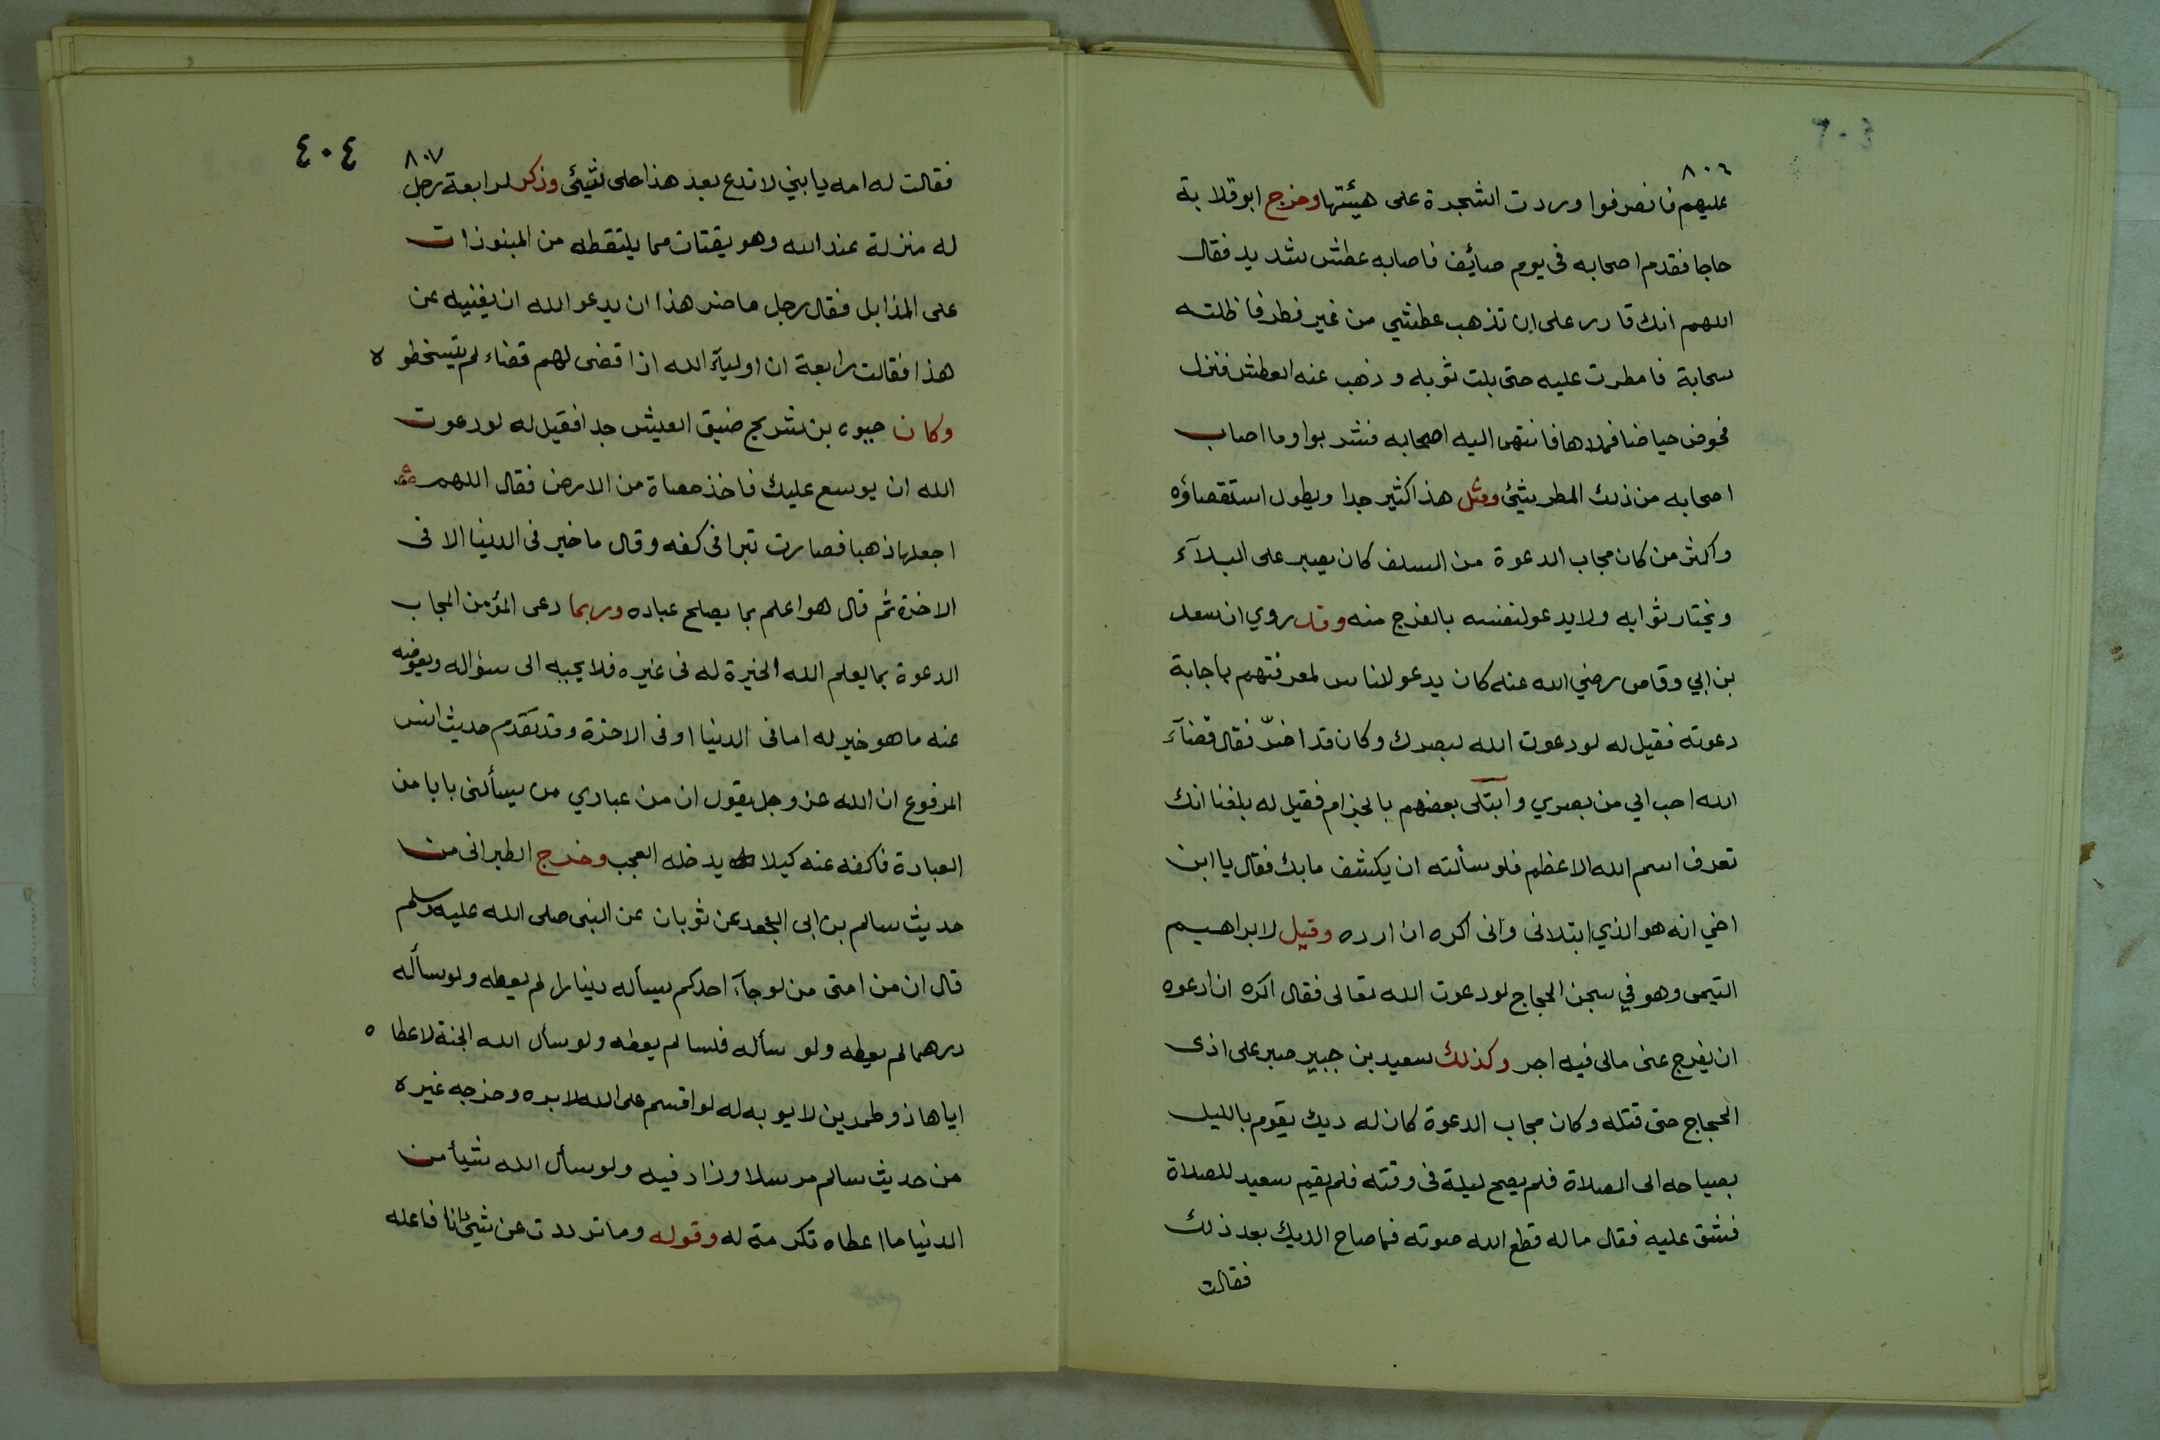 ٨٠٦
عليهم فانصرفوا وردت الشجرة على هيئتها وخرج ابو قلابة
حاجا فقدم اصحابه فى يوم صائف فاصابه عطش شديد فقال
اللهم انك قادر على ان تذهب عطشي من غير فطر فاظلته
سحابة فامطرت عليه حتى بلت ثوبه وذهب عنه العطش فنزل
فحوض حياضا فملاها فانتهى اليه اصحابه فشربوا وما اصاب
اصحابه من ذلك المطر شئ ومثل هذا كثير جدا ويطول استقصاؤه
واكثر من كان مجاب الدعوة من السلف كان يصبر على البلآء
ويختار ثوابه ولا يدعو لنفسه بالفرج منه وقد روي ان سعد
بن ابي وقاص رضي الله عنه كان يدعو للناس لمعرفتهم باجابة
دعوته فقيل له لو دعوت الله لبصرك وكان قد اضر فقال قضآء
الله احب الي من بصري وابتلى بعضهم بالجزام فقيل له بلغنا انك
تعرف اسم الله الاعظم فلو سألته ان يكشف ما بك فقال يا ابن
اخي انه هو الذي ابتلانى وانى اكره ان ارده وقيل لابراهيم
التيمى وهو في سجن الحجاج لو دعوت الله تعالى فقال اكره ان ادعوه
ان يفرج عنى مالى فيه اجر وكذلك سعيد بن جبير صبر على اذى
الحجاج حتى قتله وكان مجاب الدعوة كان له ديك يقوم بالليل
بصياحه الى الصلاة فلم يصح ليلة فى وقته فلم يقم سعيد للصلاة
فشق عليه فقال ماله قطع الله صوته فما صاح الديك بعد ذلك
فقالت
٨٠٧
٤٠٤
فقالت له امه يا بني لا تدع بعد هذا على شئ وذكر لرابعة رجل
له منزلة عند الله وهو يقتات مما يلتقطه من المنبوذات
على المزابل فقال رجل ما ضر هذا ان يدعو الله ان يغنيه عن
هذا فقالت رابعة ان اوليآء الله اذا قضى لهم قضاء لم يتسخطوه
وكان حيوه بن شريح ضيق العيش جدا فقيل له لو دعوت
الله ان يوسع عليك فاخذ حصاة من الارض فقال اللهم
اجعلها ذهبا فصارت تبرا فى كفه وقال ما خير فى الدنيا الا فى
الاخرة ثم قال هو اعلم بما يصلح عباده وربما دعى المؤمن المجاب
الدعوة بما يعلم الله الخيرة له فى غيره فلا يجيبه الى سؤاله ويعوضه
عنه ما هو خير له اما فى الدنيا او فى الاخرة وقد تقدم حديث انس
المرفوع ان الله عز وجل يقول ان من عبادي من يسألنى بابا من
العبادة فاكفه عنه كيلا يدخله العجب وخرج الطبرانى من
حديث سالم بن ابى الجعد عن ثوبان عن النبى صلى الله عليه وسلم
قال ان من امتى من لو جآء احدكم يسأله دينارا لم يعطه ولو سأله
درهما لم يعطه ولو سأله فلسا لم يعطه ولو سأل الله الجنة لاعطاه
اياها ذو طمرين لا يوبه له لو اقسم على الله لابره وخرجه غيره
من حديث سالم مرسلا وزاد فيه ولو سأل الله شيأ من
الدنيا ما اعطاه تكرمة له وقوله وما ترددت عن شئ انا فاعله